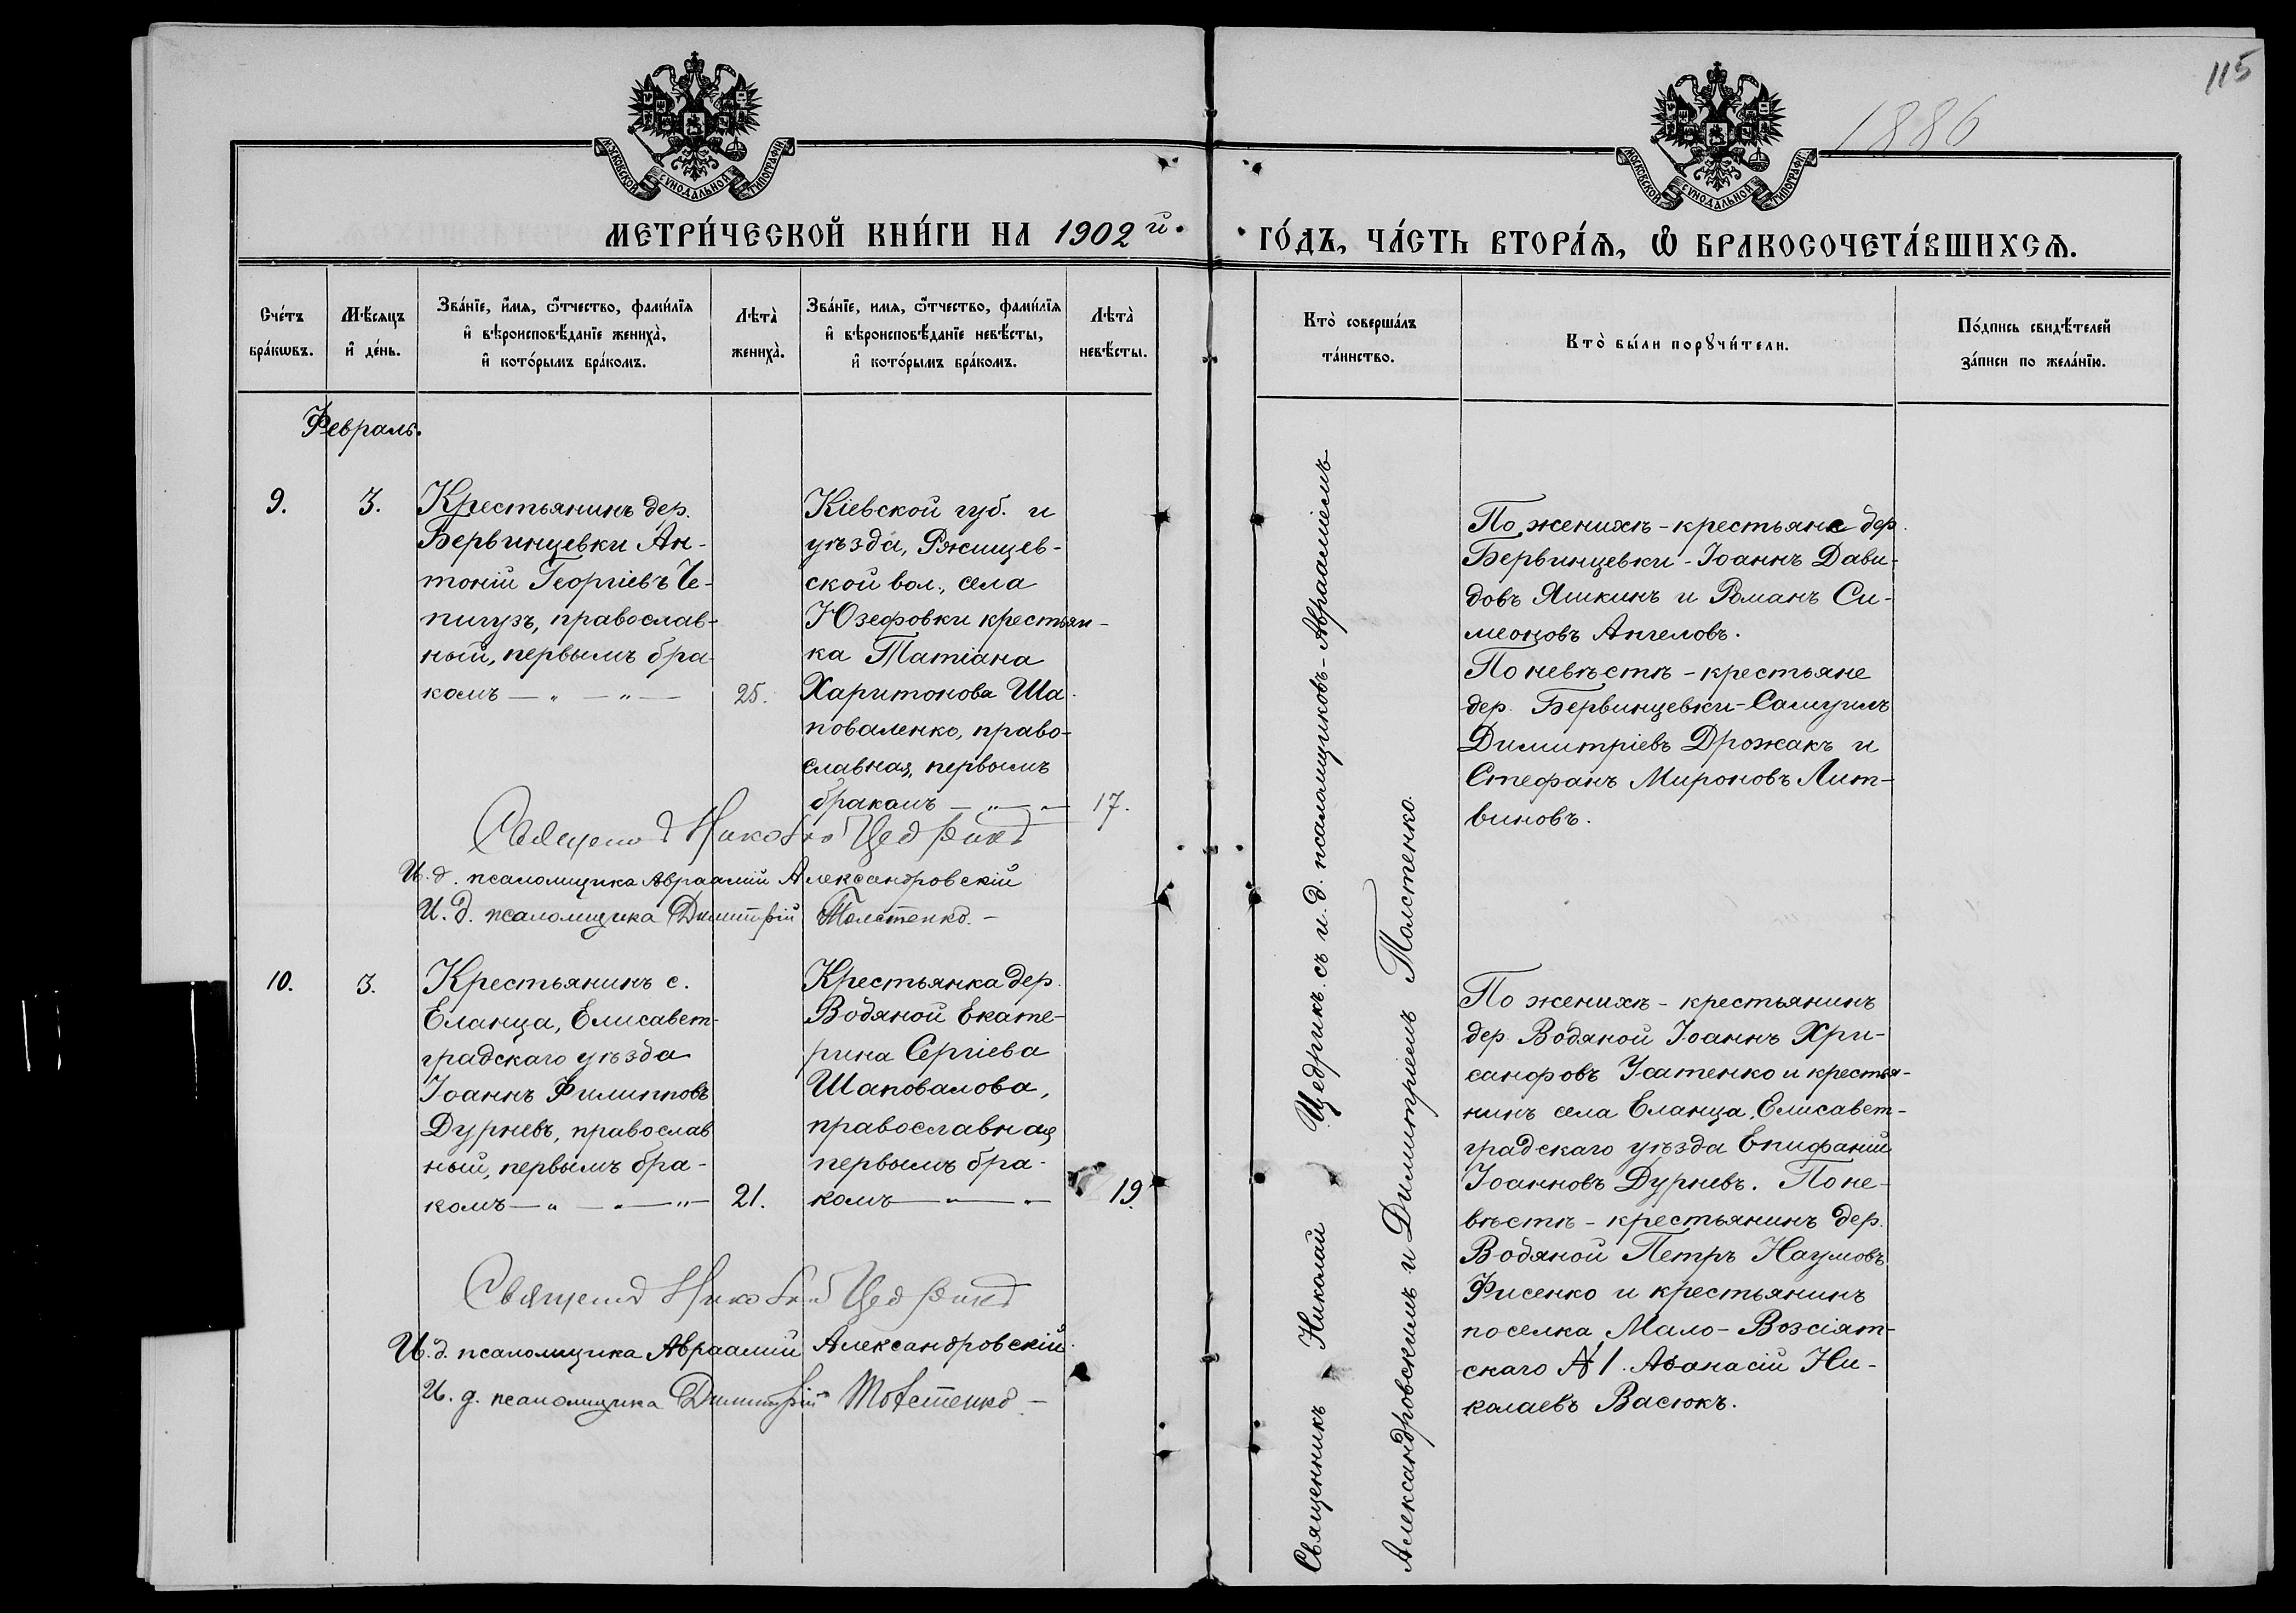 115
1886
МОСКОВСКОЙ СѴНОДАЛЬНОЙ ТИПОГРАФІИ
МОСКОВСКОЙ СѴНОДАЛЬНОЙ ТИПОГРАФІИ
МЕТРИ́ЧЕСКОЙ КНИ́ГИ НА 1902й
ГО́ДЪ, ЧА́СТЬ ВТОРА́Ѧ, Ѽ БРАКОСОЧЕТА́ВШИХСѦ.
Сче́тъ бра́кѡвъ.
Мѣ́сяцъ и҆ де́нь.
Зва́нїе, и҆́мѧ, ѻ҆́тчество, фами́лїѧ и҆ вѣроисповѣ́данїе жениха̀, и҆ кото́рымъ бра́комъ.
Лѣта̀ жениха̀.
Зва́нїе, имѧ, ѻ҆́тчество, фами́лїѧ и҆ вѣроисповѣ́данїе невѣ́сты, и҆ кото́рымъ бра́комъ.
Лѣта̀ невѣ́сты.
Кто̀ соверша́лъ та́инство.
Кто̀ бы́ли порꙋчи́тели.
По́дпись свидѣ́телей за́писи по жела́нїю.
Февраль.
9.
3.
Крестьянинъ дер.
Бервинцевки Ан-
тоній Георгіевъ Че-
пигузъ, православ-
ный, первымъ бра-
комъ — „ — „ —
25.
Кіевской губ. и
уѣзда, Ржищев-
ской вол., села
Юзефовки крестьян-
ка Татіана
Харитонова Ша-
поваленко, право-
славная, первымъ
бракомъ — „ — „ —
17.
Священ Николай Щедрикъ
И. д. псаломщика Авраамій Александровскій
И. д. псаломщика Димитрій Толстенко. –
По женихѣ - крестьяне дер.
Бервинцевки - Іоаннъ Дави-
довъ Яшкинъ и Романъ Си-
меоновъ Ангеловъ.
По невѣстѣ - крестьяне
дер. Бервинцевки - Самуилъ
Димитріевъ Дрожакъ и
Стефанъ Мироновъ Лит-
виновъ.
10.
3.
Крестьянинъ с.
Еланца, Елисавет-
градскаго уѣзда
Іоаннъ Филипповъ
Дурневъ, православ
ный, первымъ бра-
комъ — „ — „ — „ —
21.
Крестьянка дер.
Водяной Екате-
рина Сергіева
Шаповалова,
православная
первымъ бра-
комъ — „ — „
19.
Священ Николай Щедрикъ
И. д. псаломщика Авраамій Александровскій.
И. д. псаломщика Димитрій Толстенко –
По женихѣ - крестьянинъ
дер. Водяной Іоаннъ Хри-
санфовъ Усатенко и крестья-
нинъ села Еланца, Елисавет-
градскаго уѣзда Епифаній
Іоанновъ Дурневъ. По не-
вѣстѣ - крестьянинъ дер.
Водяной Петръ Наумовъ
Фисенко и крестьянинъ
поселка Мало-Возсіят-
скаго № 1. Аѳанасій Ни-
колаевъ Васюкъ.
Священникъ Николай Щедрикъ съ и. д. псаломщиковъ - Авраамiемъ
Александровскимъ и Димитріемъ Толстенко.